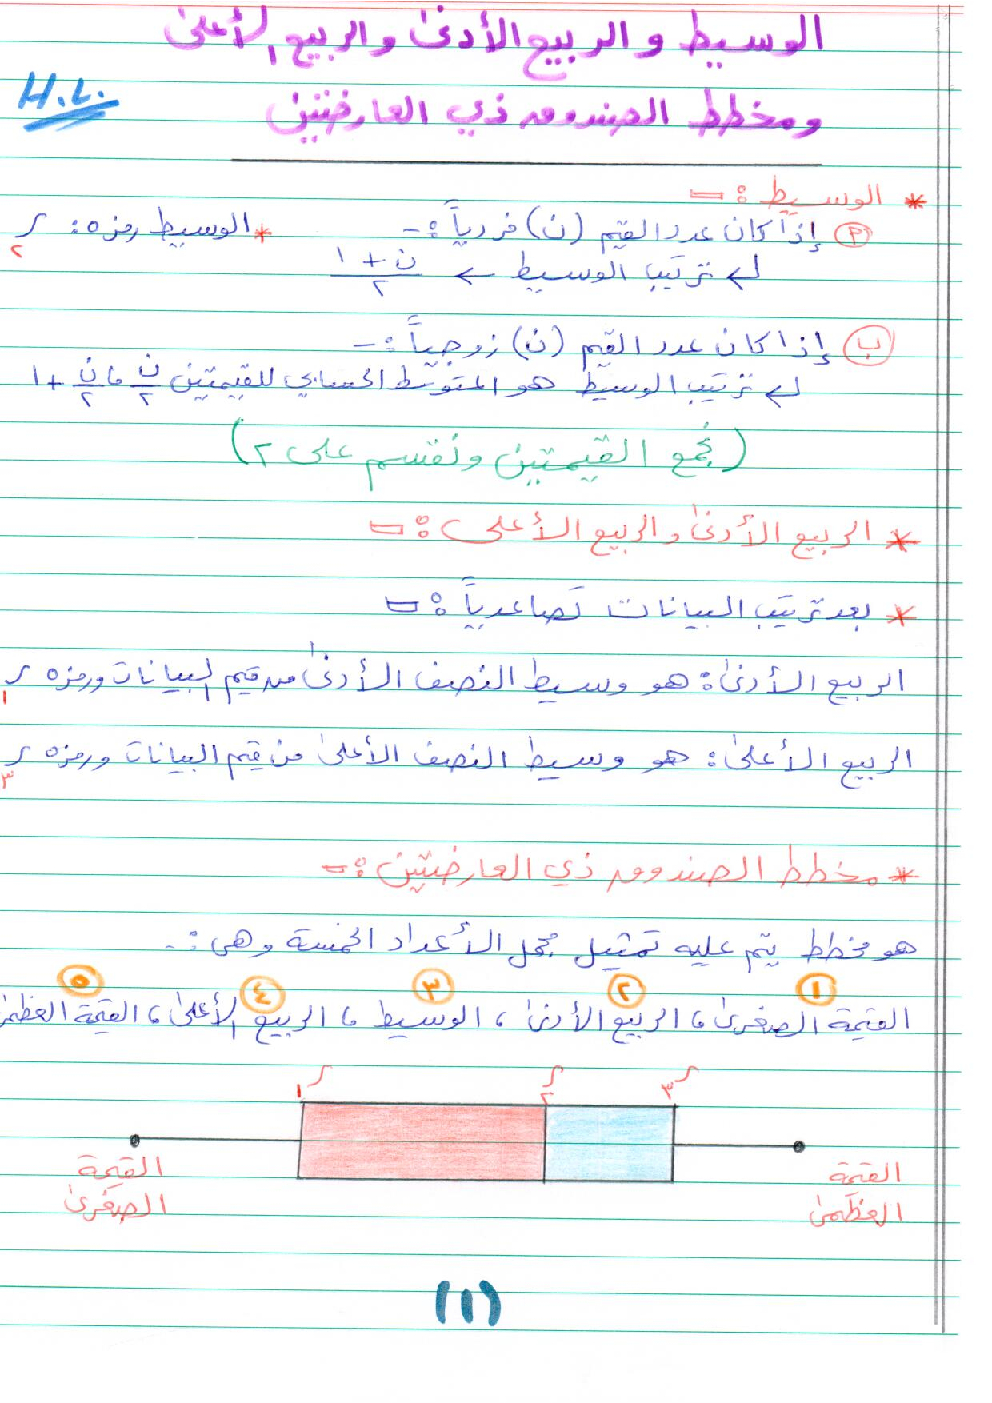 الوسيط والربيع الأدنى والربيع الأعلى
ومخطط الصندوق ذي العارضتين
H.L.
* الوسيط :-
(أ) إذا كان عدد القيم (ن) فردياً :-
* الوسيط رمزه : ر٢
ترتيب الوسيط ← ن + ١ / ٢
(ب) إذا كان عدد القيم (ن) زوجياً :-
ترتيب الوسيط هو المتوسط الحسابي للقيمتين ن/٢ ، ن/٢ + ١
(نجمع القيمتين ونقسم على ٢)
* الربيع الأدنى والربيع الأعلى :-
* بعد ترتيب البيانات تصاعدياً :-
الربيع الأدنى : هو وسيط النصف الأدنى من قيم البيانات ورمزه ر١
الربيع الأعلى : هو وسيط النصف الأعلى من قيم البيانات ورمزه ر٣
* مخطط الصندوق ذي العارضتين :-
هو مخطط يتم عليه تمثيل مجمل الأعداد الخمسة وهي :-
١ ٢ ٣ ٤ ٥
القيمة الصغرى ، الربيع الأدنى ، الوسيط ، الربيع الأعلى ، القيمة العظمى
ر١ ر٢ ر٣
القيمة الصغرى
القيمة العظمى
(١)